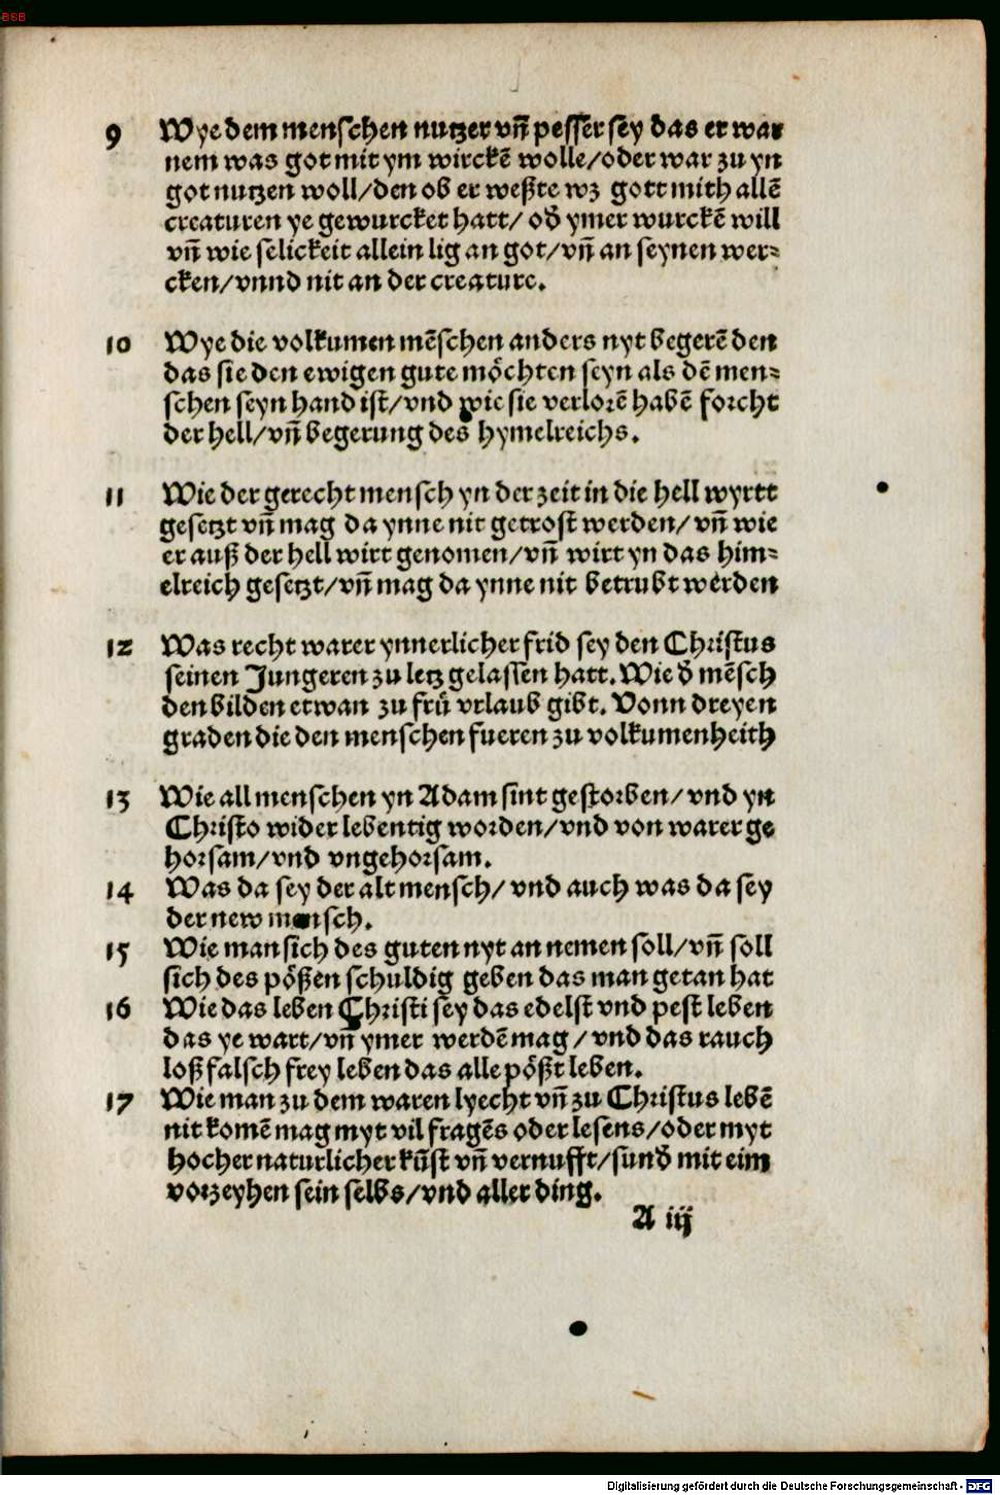 BSB
9 Wye dem menschen nutzer vñ pesser sey das er war
nem was got mit ym wirckē wolle/oder war zu yn
got nutzen woll/den ob er weßte wz gott mith allē
creaturen ye gewurcket hatt/ od̾ ymer wurckē will
vñ wie selickeit allein lig an got/vñ an seynen wer⸗
cken/vnnd nit an der creature.
10 Wye die volkumen mēschen anders nyt begerē den
das sie den ewigen gute möchten seyn als dē men⸗
schen seyn hand ist/vnd wie sie verlorē habē forcht
der hell/vñ begerung des hymelreichs.
11 Wie der gerecht mensch yn der zeit in die hell wyrtt
gesetzt vñ mag da ynne nit getrost werden/vñ wie
er auß der hell wirt genomen/vñ wirt yn das him⸗
elreich gesetzt/vñ mag da ynne nit betrubt werden
12 Was recht warer ynnerlicher frid sey den Christus
seinen Jungeren zu letz gelassen hatt. Wie d̾ mēsch
den bilden etwan zu frü vrlaub gibt. Vonn dreyen
graden die den menschen fueren zu volkumenheith
13 Wie all menschen yn Adam sint gestorben/vnd yn
Christo wider lebentig worden/vnd von warer ge
horsam/vnd vngehorsam.
14 Was da sey der alt mensch/ vnd auch was da sey
der new mensch.
15 Wie man sich des guten nyt an nemen soll/vñ soll
sich des pößen schuldig geben das man getan hat
16 Wie das leben Christi sey das edelst vnd pest leben
das ye wart/vñ ymer werdē mag/ vnd das rauch
loß falsch frey leben das alle pößt leben.
17 Wie man zu dem waren lyecht vñ zu Christus lebē
nit komē mag myt vil fragēs oder lesens/oder myt
hocher naturlicher kūst vñ vernufft/sund̾ mit eim
vorzeyhen sein selbs/vnd aller ding.
A iij
Digitalisierung gefördert durch die Deutsche Forschungsgemeinschaft - DFG